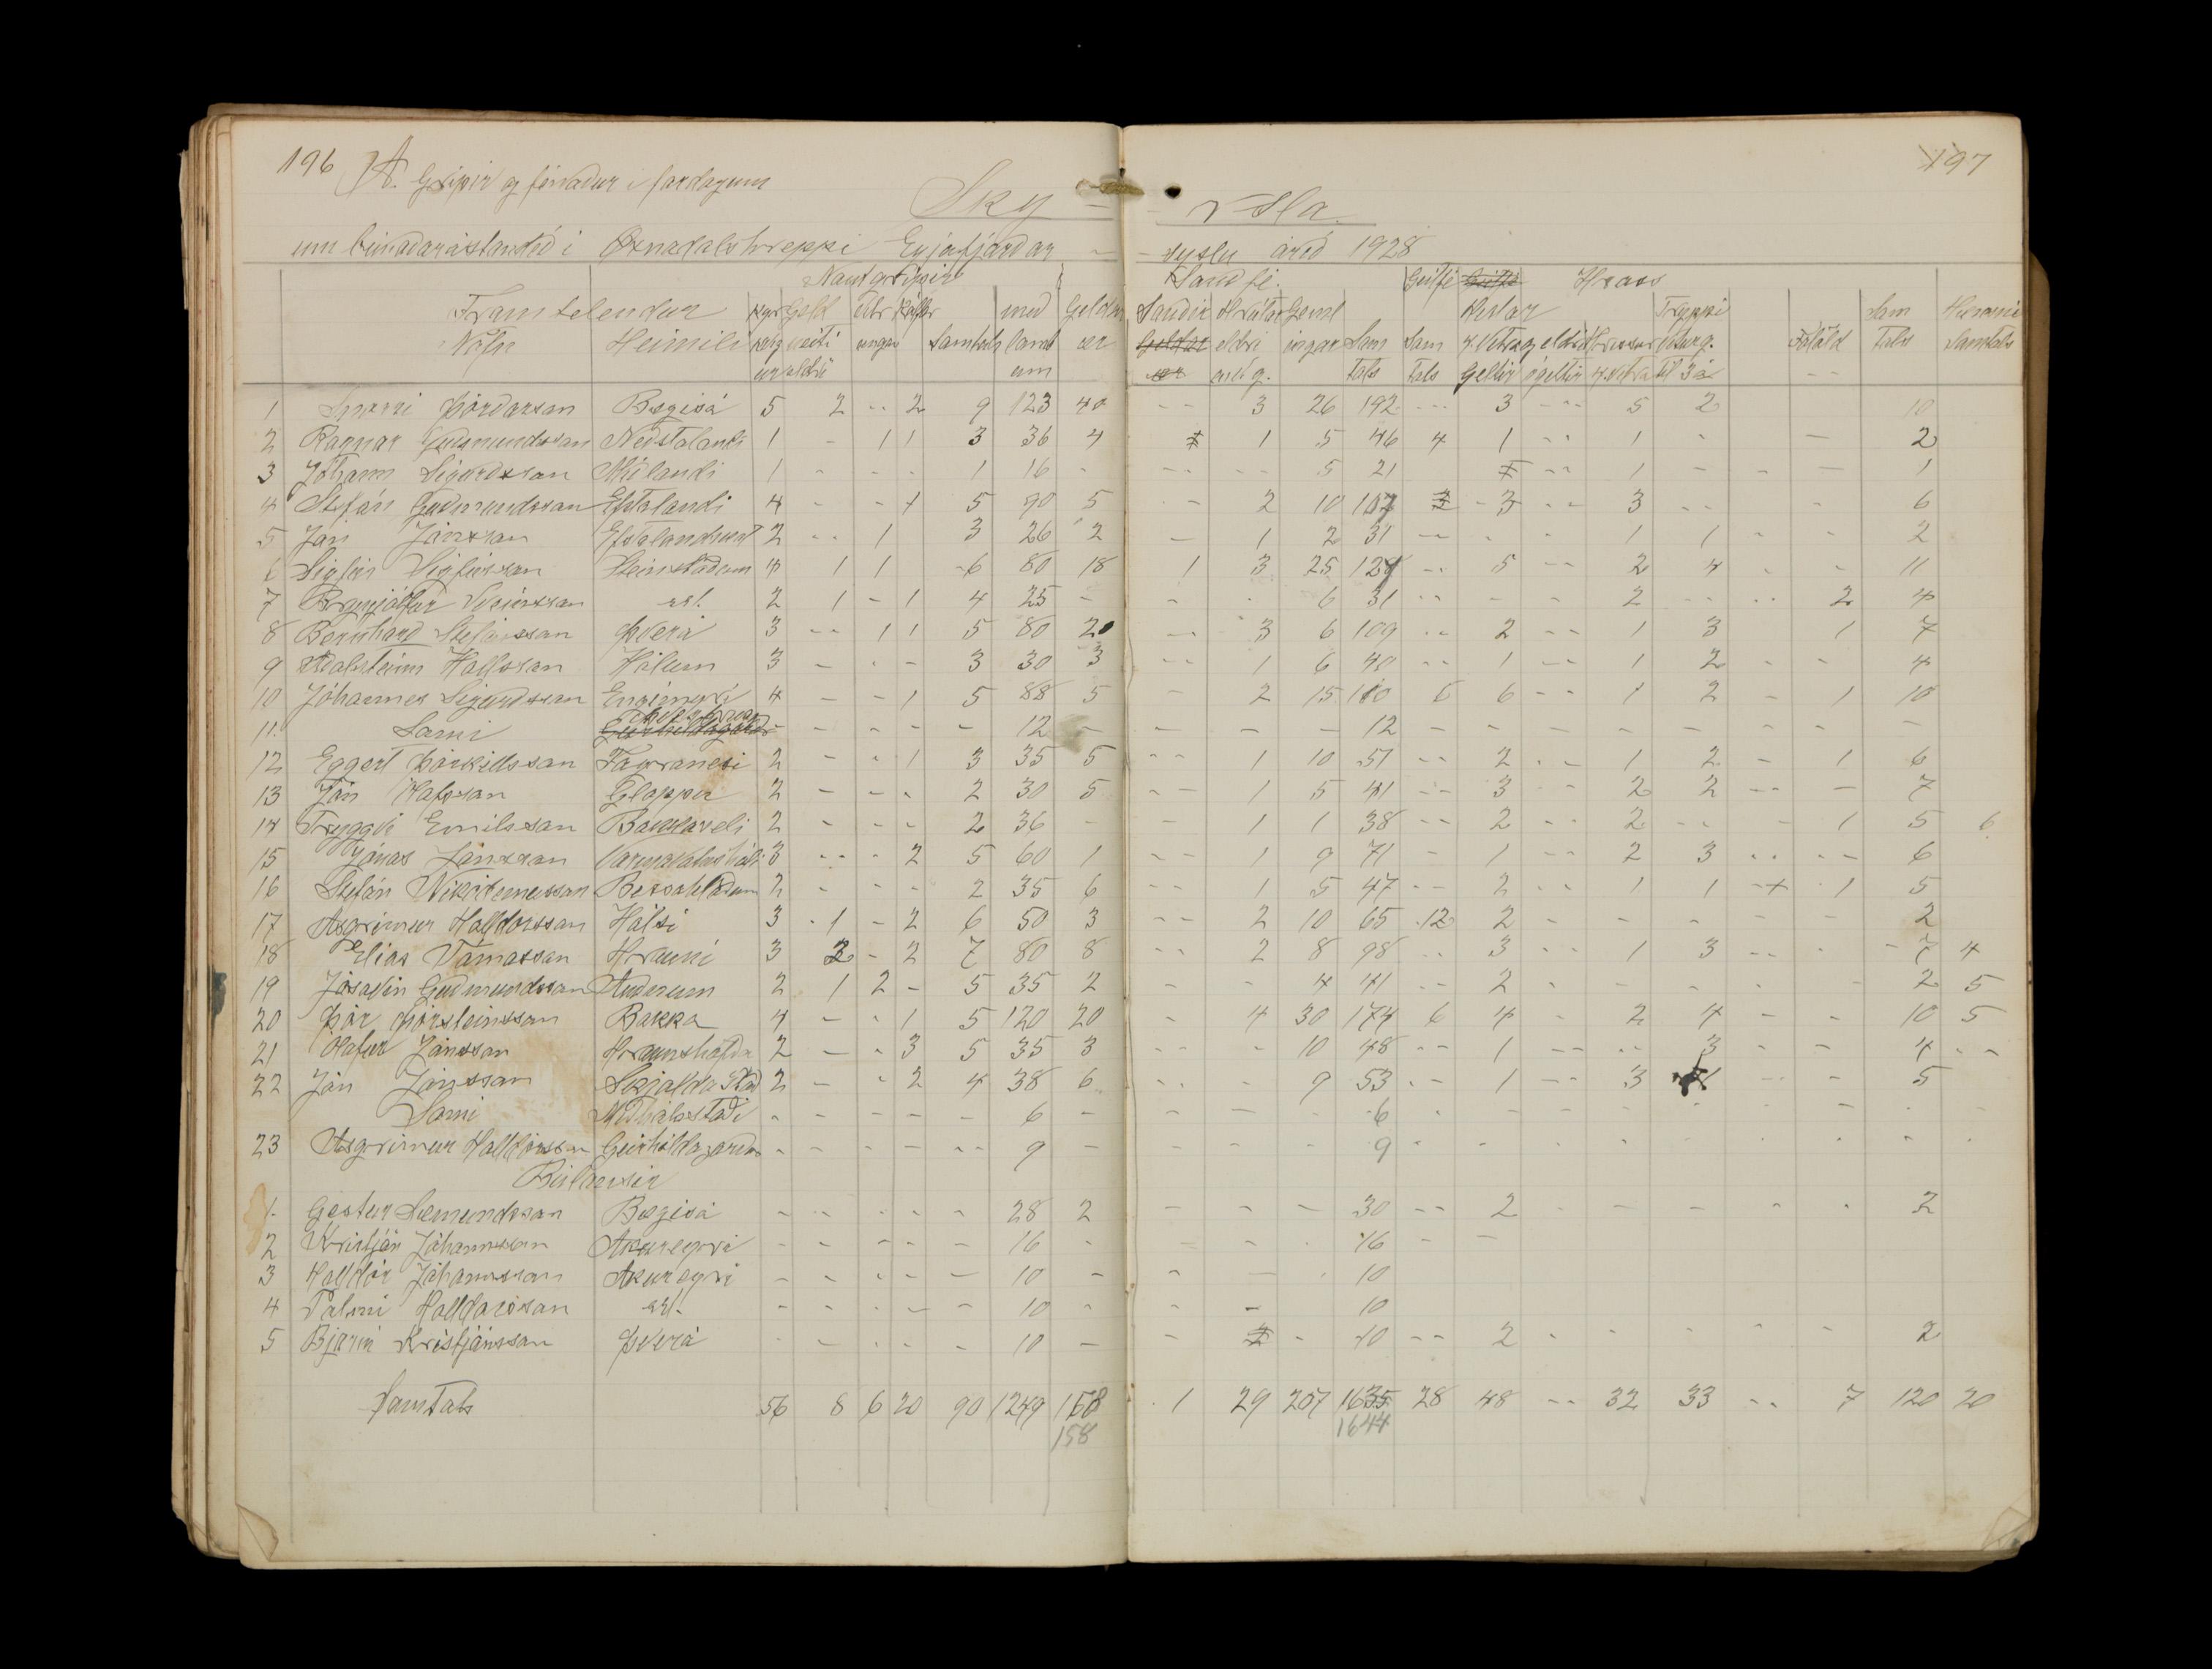 196 A. Gripir og fénaður í fardögum 197
Sky - - rsla.
um búnaðarástandið í Öxnadalshreppi Eyjafjarðar - - sýslu árið 1928
Nautgripir Sauðfé. Geitfé Hross
Framteljendur kýr Geld Kálfar með Geldar Sauðir Hrútar Geml Hestar Tryppi Sam Hænsni
Nöfn Heimili Samtals lamb ær eldri ingar Sam Sam Folöld tals Samtals
um tals tals geltir ógeltir
1 Snorri Þórðarson Bægisá 5 2 - - 2 9 123 40 - - 3 26 192 - - 3 - - 5 2 10
2 Ragnar Guðmundsson Neðstalandi 1 - 1 1 3 36 4 1 5 46 4 1 - - 1 - - 2
3 Jóhann Sigurðsson Miðlandi 1 - - - 1 16 - - - - - 5 21 - - 1 - - - 1
4 Stefán Guðmundsson Efstalandi 4 - - 1 5 90 5 - - 2 10 107 - 3 - - 3 - - - 6
5 Jón Jónsson Efstalandskoti 2 - - 1 3 26 2 - 1 2 31 - - - 1 1 - - 2
6 Sigfús Sigfússon Steinsstöðum 4 1 1 - 6 80 18 1 3 25 127 - - 5 - - 2 4 - - 11
7 Brynjólfur Sveinsson s.st. 2 1 - 1 4 25 - - - 6 31 - - - - 2 - - - - 2 4
8 Bernharð Stefánsson Þverá 3 - - 1 1 5 80 20 - 3 6 109 - - 2 - - 1 3 1 7
9 Aðalsteinn Hallsson Hólum 3 - - - 3 30 3 - - 1 6 40 - - 1 - - 1 2 - - 4
10 Jóhannes Sigurðsson Engimýri 4 - - 1 5 88 5 - 2 15 110 6 6 - - 1 2 - 1 10
11. Sami - - - - - 12 - - - - 12 - - - - - - - -
12 Eggert Þorkelsson Fagranesi 2 - - 1 3 35 5 - - 1 10 51 - - 2 - - 1 2 - 1 6
13 Jón Hafsson Gloppu 2 - - - 2 30 5 - - 1 5 41 - - 3 - - 2 2 - - - 7
14 Tryggvi Emilsson Bakkaseli 2 - - - 2 36 - - 1 1 38 - - 2 - - 2 - - - 1 5 6
15 Jónas Jónsson Varmavatnshóli 3 - - - 2 5 60 1 - - 1 9 71 - 1 - - 2 3 - - - - 6
16 Stefán Nikódemusson Bessahlöðum 2 - - - 2 35 6 - - 1 5 47 - - 2 - - 1 1 - 1 5
17 Ásgrímur Halldórsson Hálsi 3 1 - 2 6 50 3 - - 2 10 65 12 2 - - - - - 2
18 Elías Tómasson Hrauni 3 2 - 2 7 80 8 - - 2 8 98 - - 3 - - 1 3 - - - 7 4
19 Jósavin Guðmundsson Auðnum 2 1 2 - 5 35 2 - - 4 41 - - 2 - - - - - 2 5
20 Þór Þórsteinsson Bakka 4 - - 1 5 120 20 - 4 30 174 6 4 - 2 4 - - 10 5
21 Ólafur Jónsson Hraunshöfða 2 - - 3 5 35 3 - - - 10 48 - - 1 - - - - 3 - - 4 - -
22 Jón Jónsson Skjaldastöð 2 - - 2 4 38 6 - - - 9 53 - - 1 - - 3 1 - - 5
Sami Miðhálsstaði - - - - - 6 - - - - 6 - - - - - - - - -
23 Ásgrímur Halldórsson Geirhildargarðar - - - - - - 9 - - - - 9 - - - - - - - - -
Búlausir
1. Gestur Sæmundsson Bægisá - - - - - 28 2 - - - 30 - - 2 - - - - - 2
2 Kristján Jóhannsson Akureyri - - - - - 16 - - - - 16 - -
3 Halldór Jóhannsson Akureyri - - - - - 10 - - - - 10
4 Pálmi Halldórsson s.st. - - - - - 10 - - - 10
5 Bjarni Kristjánsson Þverá - - - - - 10 - - - 10 - - 2 - - - - - 2
Samtals 56 8 6 20 90 1249 158 1 29 207 1635 28 48 - - 32 33 - - 7 120 20
158 1644